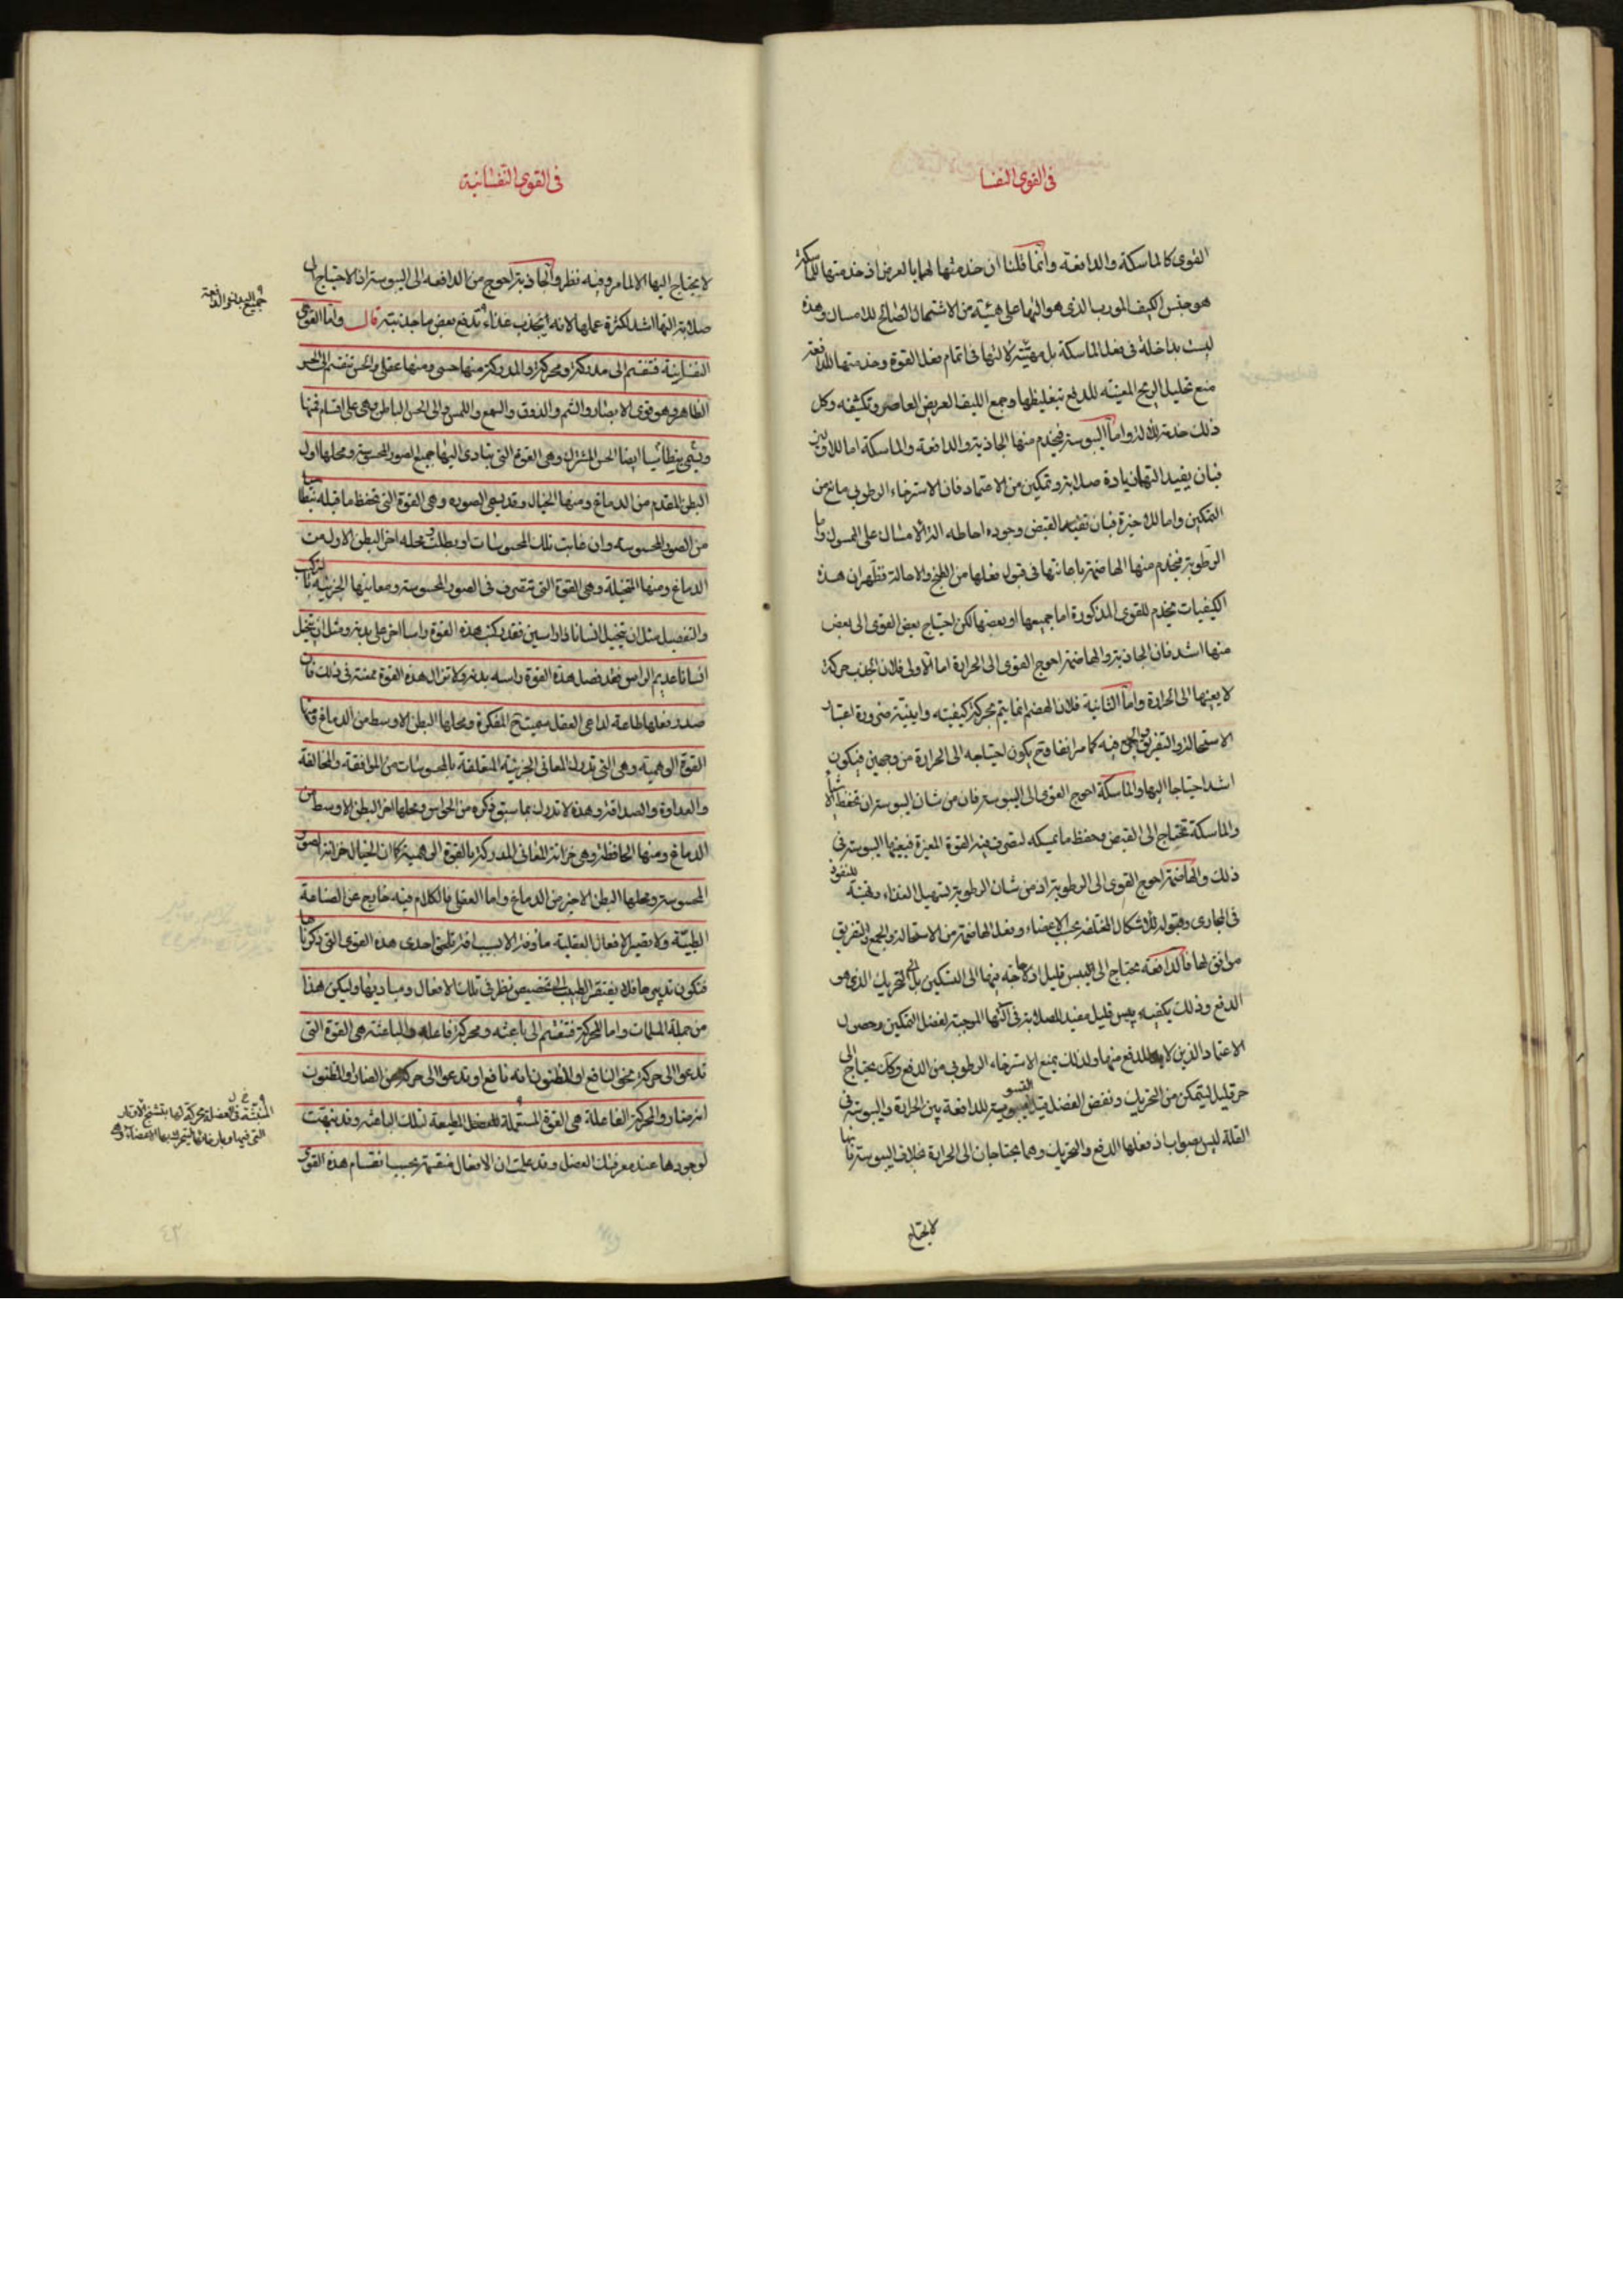 فى القوى النفسا
القوى كالماسكة والدافعة وانما قلنا ان خدمتها لهما بالعرض اذ خدمتها للماسكة
هو حبس الليف المورب الذى هو التها على هيئة من الاشتمال الصالح للامساك وهذه
ليست بداخلة فى فعل الماسكة بل مهيئة لالتها فى اتمام فعل القوة وخدمتها للدافعة
منع تحليل الريح المعينة للدفع بتغليظها وجمع الليف العريض العاصر وتكثيفه وكل
ذلك خدمة للالة واما اليبوسة فيخدم منها الجاذبة والدافعة والماسكة اما للاوليين
فبان يفيد التهما زيادة صلابة وتمكين من الاعتماد فان الاسترخاء الرطوبى مانع من
التمكين واما للاخيرة فبان تفيدها القبض وجودة احاطة الالة الامساك على الممسوك واما
الرطوبة فيخدم منها الهاضمة باعانتها فى قبول فعلها من الطبخ والاحالة فظهر ان هذه
الكيفيات يخدم للقوى المذكورة اما جميعها او بعضها لكن احتياج بعض القوى الى بعض
منها اشد فان الجاذبة والهاضمة احوج القوى الى الحرارة اما الاولى فلان الجذب حركة
لا يعينها الى الحرارة واما الثانية فلان الهضم انما يتم بحركة كيفية واينية ضرورة اعتبار
الاستحالة والتفريق والجمع فيه كما مر انفا فح يكون احتياجه الى الحرارة من وجهين فيكون
اشد احتياجا اليها والماسكة احوج القوى الى اليبوسة فان من شان اليبوسة ان تحفظ
والماسكة تحتاج الى القبض وحفظ ما يمسكه لتصرف فيه القوة المغيرة فيعينها اليبوسة فى
ذلك والهاضمة احوج القوى الى الرطوبة اذ من شان الرطوبة تسهيل الغذاء وتهيئة للنفوذ
فى المجارى وقبوله للاشكال المختلفة بحسب الاعضاء وفعل الهاضمة من الاستحالة والجمع والتفريق
موافق لها فالدافعة يحتاج الى يبس قليل اذ لا حاجة فيها الى التسكين بل الى التحريك الذى هو
الدفع وذلك يكفيه يبس قليل مفيد للصلابة فى التها الموجبة لفضل التمكين وحصول
الاعتماد الذين لا بد للدفع منهما ولذلك يمنع الاسترخاء الرطوبى من الدفع وكان يحتاج الى
حر قليل ليتمكن من التحريك ونقض الفضل قيل التسوية للدافعة بين الحرارة واليبوسة فى
القلة ليس بصواب اذ فعلها الدفع والتحريك وهما يحتاجان الى الحرارة بخلاف اليبوسة فانها
لا يحتاج
فى القوى النفسانية
لا يحتاج اليها الا لما مر وفيه نظر والجاذبة احوج من الدافعة الى اليبوسة اذ الاحتياج الى
صلابة التها اشد لكثرة عملها لانه يجذب غذاء وتدفع بعض ما جذبته قال واما القوى
جميع البدن والدافعة
النفسانية فتنقسم الى مدركة ومحركة والمدركة منها حسى ومنها عقلى والحس تنقسم الى الحس
الظاهر وهو قوى الابصار والشم والذوق والسمع واللمس والى الحس الباطن وهى على اقسام فمنها
ويسمى بنطاسيا ايضا الحس المشترك وهى القوة التى يتادى اليها جميع الصور المحسوسة ومحلها اول
البطن المقدم من الدماغ ومنها الخيال وقد يسمى الصورة وهى القوة التى تحفظ ما قبله بنطاسيا
من الصور المحسوسة وان غابت تلك المحسوسات او بطلت ومحله اخر البطن الاول من
الدماغ ومنها المتخيلة وهى القوة التى تتصرف فى الصور المحسوسة ومعانيها الجزئية بالتركيب
والتفصيل مثل ان يتخيل انسانا ذا راسين فقد ركبت هذه القوة راسا اخر على بدنه ومثل ان يتخيل
انسانا عديم الراس فقد فصل هذه القوة راسه بدنه ولا تزال هذه القوة ممتثلة فى ذلك فان
صدر فعلها طاعة لداعى العقل سميت ح المفكرة ومحلها البطن الاوسط من الدماغ ومنها
القوة الوهمية وهى التى تدرك المعانى الجزئية المتعلقة بالمحسوسات من الموافقة والمخالفة
والعداوة والصداقة وهذه لا تدرك بما سبق ذكره من الحواس ومحلها اخر البطن الاوسط من
الدماغ ومنها الحافظة وهى خزانة المعانى المدركة بالقوة الوهمية كما ان الخيال خزانة الصور
المحسوسة ومحلها البطن الاخير من الدماغ واما العقلى فالكلام فيه خارج عن الصناعة
الطبية ولا يصير الافعال العقلية ماوفة الا بسبب افة تلحق احدى هذه القوى التى ذكرناها
فتكون تدبيرها فلا يفتقر الطبيب الى تخصيص نظر فى تلك الافعال ومباديها وليكن هذا
من جملة المسلمات واما المحركة فتنقسم الى باعثة ومحركة فاعلة والباعثة هى القوة التى
تدعو الى حركة نحو النافع او المظنون انه نافع او تدعو الى حركة عن الضار او المظنون
انه ضار والمحركة الفاعلة هى القوة المستعملة للعضل المطيعة لتلك الباعثة وقد نبهت
لوجودها عند معرفتك العضل وقد علمت ان الافعال منقسمة بحسب انقسام هذه القوى
المنبثة فى العضلة محركة لها بتشنج الاوتار
التى فيها وبارخائها ليتحرك بها الاعضاء
٤٣